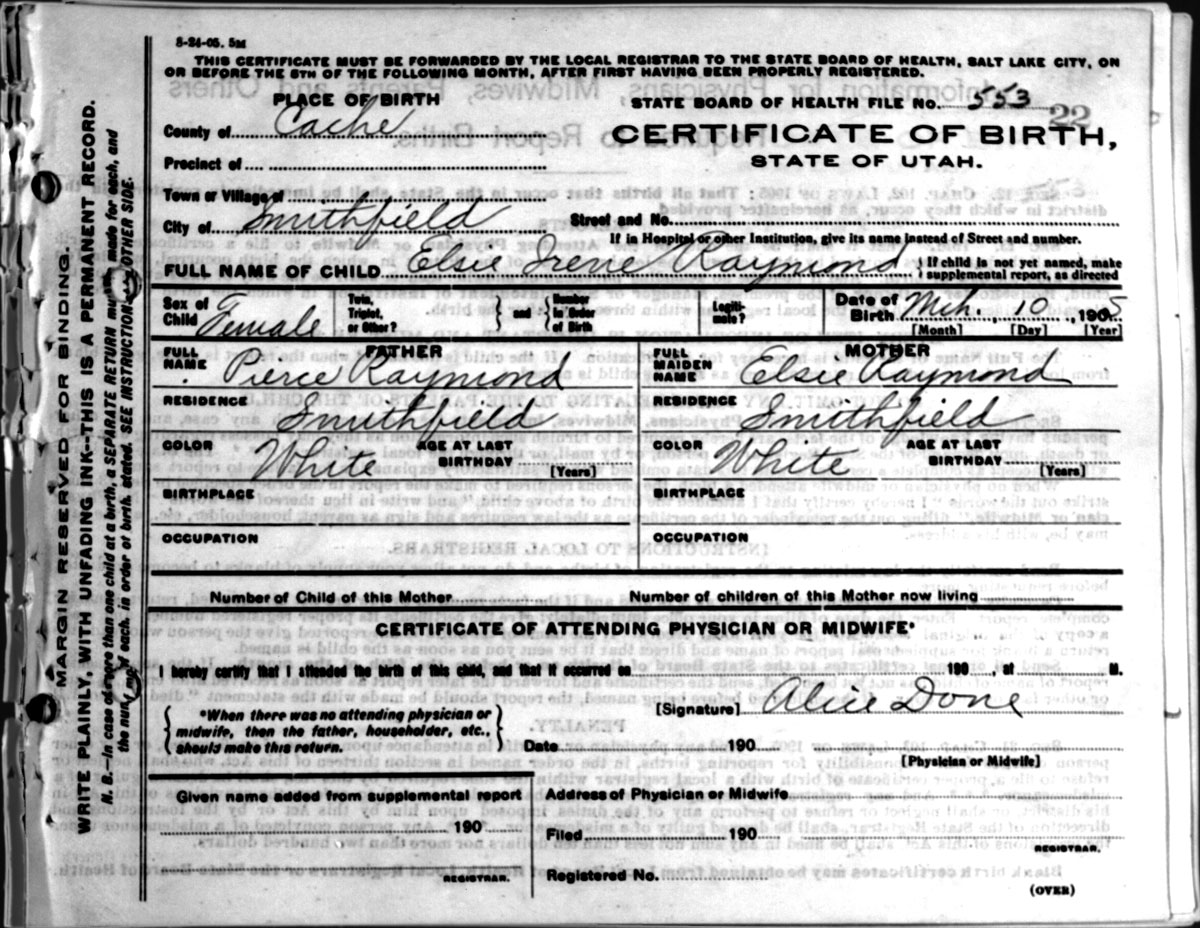 8-24-05. 5M
THIS CERTIFICATE MUST BE FORWARDED BY THE LOCAL REGISTRAR TO THE STATE BOARD OF HEALTH, SALT LAKE CITY, ON
OR BEFORE THE 5TH OF THE FOLLOWING MONTH, AFTER FIRST HAVING BEEN PROPERLY REGISTERED.
PLACE OF BIRTH
STATE BOARD OF HEALTH FILE No. 553
22
County of Cache
CERTIFICATE OF BIRTH,
STATE OF UTAH.
Precinct of
Town or Village of
City of Smithfield Street and No.
If in Hospital or other Institution, give its name instead of Street and number.
FULL NAME OF CHILD Elsie Irene Raymond { If child is not yet named, make
supplemental report, as directed
Sex of Child Female
Twin, Triplet, or Other? } and { Number in Order of Birth
Legitimate?
Date of Birth Mch. 10, 1905
[Month] [Day] [Year]
FATHER
FULL NAME Pierce Raymond
RESIDENCE Smithfield
COLOR White AGE AT LAST BIRTHDAY [Years]
BIRTHPLACE
OCCUPATION
MOTHER
FULL MAIDEN NAME Elsie Raymond
RESIDENCE Smithfield
COLOR White AGE AT LAST BIRTHDAY [Years]
BIRTHPLACE
OCCUPATION
Number of Child of this Mother Number of children of this Mother now living
CERTIFICATE OF ATTENDING PHYSICIAN OR MIDWIFE*
I hereby certify that I attended the birth of this child, and that it occurred on 190 , at M.
{ *When there was no attending physician or
midwife, then the father, householder, etc.,
should make this return. }
[Signature] Alice Done
Date 190
[Physician or Midwife]
Given name added from supplemental report
190
REGISTRAR.
Address of Physician or Midwife
Filed 190
REGISTRAR.
Registered No.
(OVER)
MARGIN RESERVED FOR BINDING.
WRITE PLAINLY, WITH UNFADING INK--THIS IS A PERMANENT RECORD.
N. B.—In case of more than one child at a birth, a SEPARATE RETURN must be made for each, and
the number of each, in order of birth, stated. SEE INSTRUCTIONS ON OTHER SIDE.